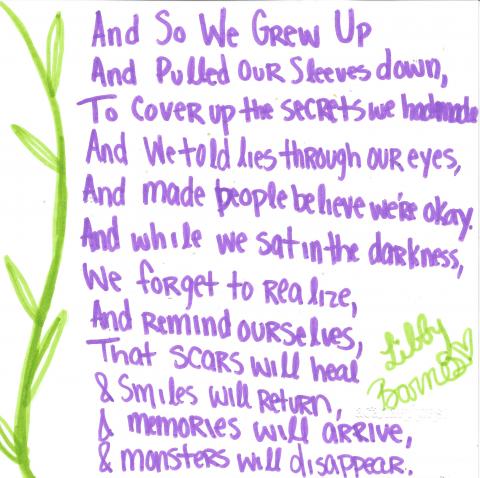 And So We Grew Up
And Pulled our Sleeves down,
To cover up the secrets we had made
And We told lies through our eyes,
And made people believe we're okay.
And while we sat in the darkness,
We forget to realize,
And remind ourselves,
That scars will heal
& Smiles will return,
& memories will arrive,
& monsters will disappear.
Libby
Barnes